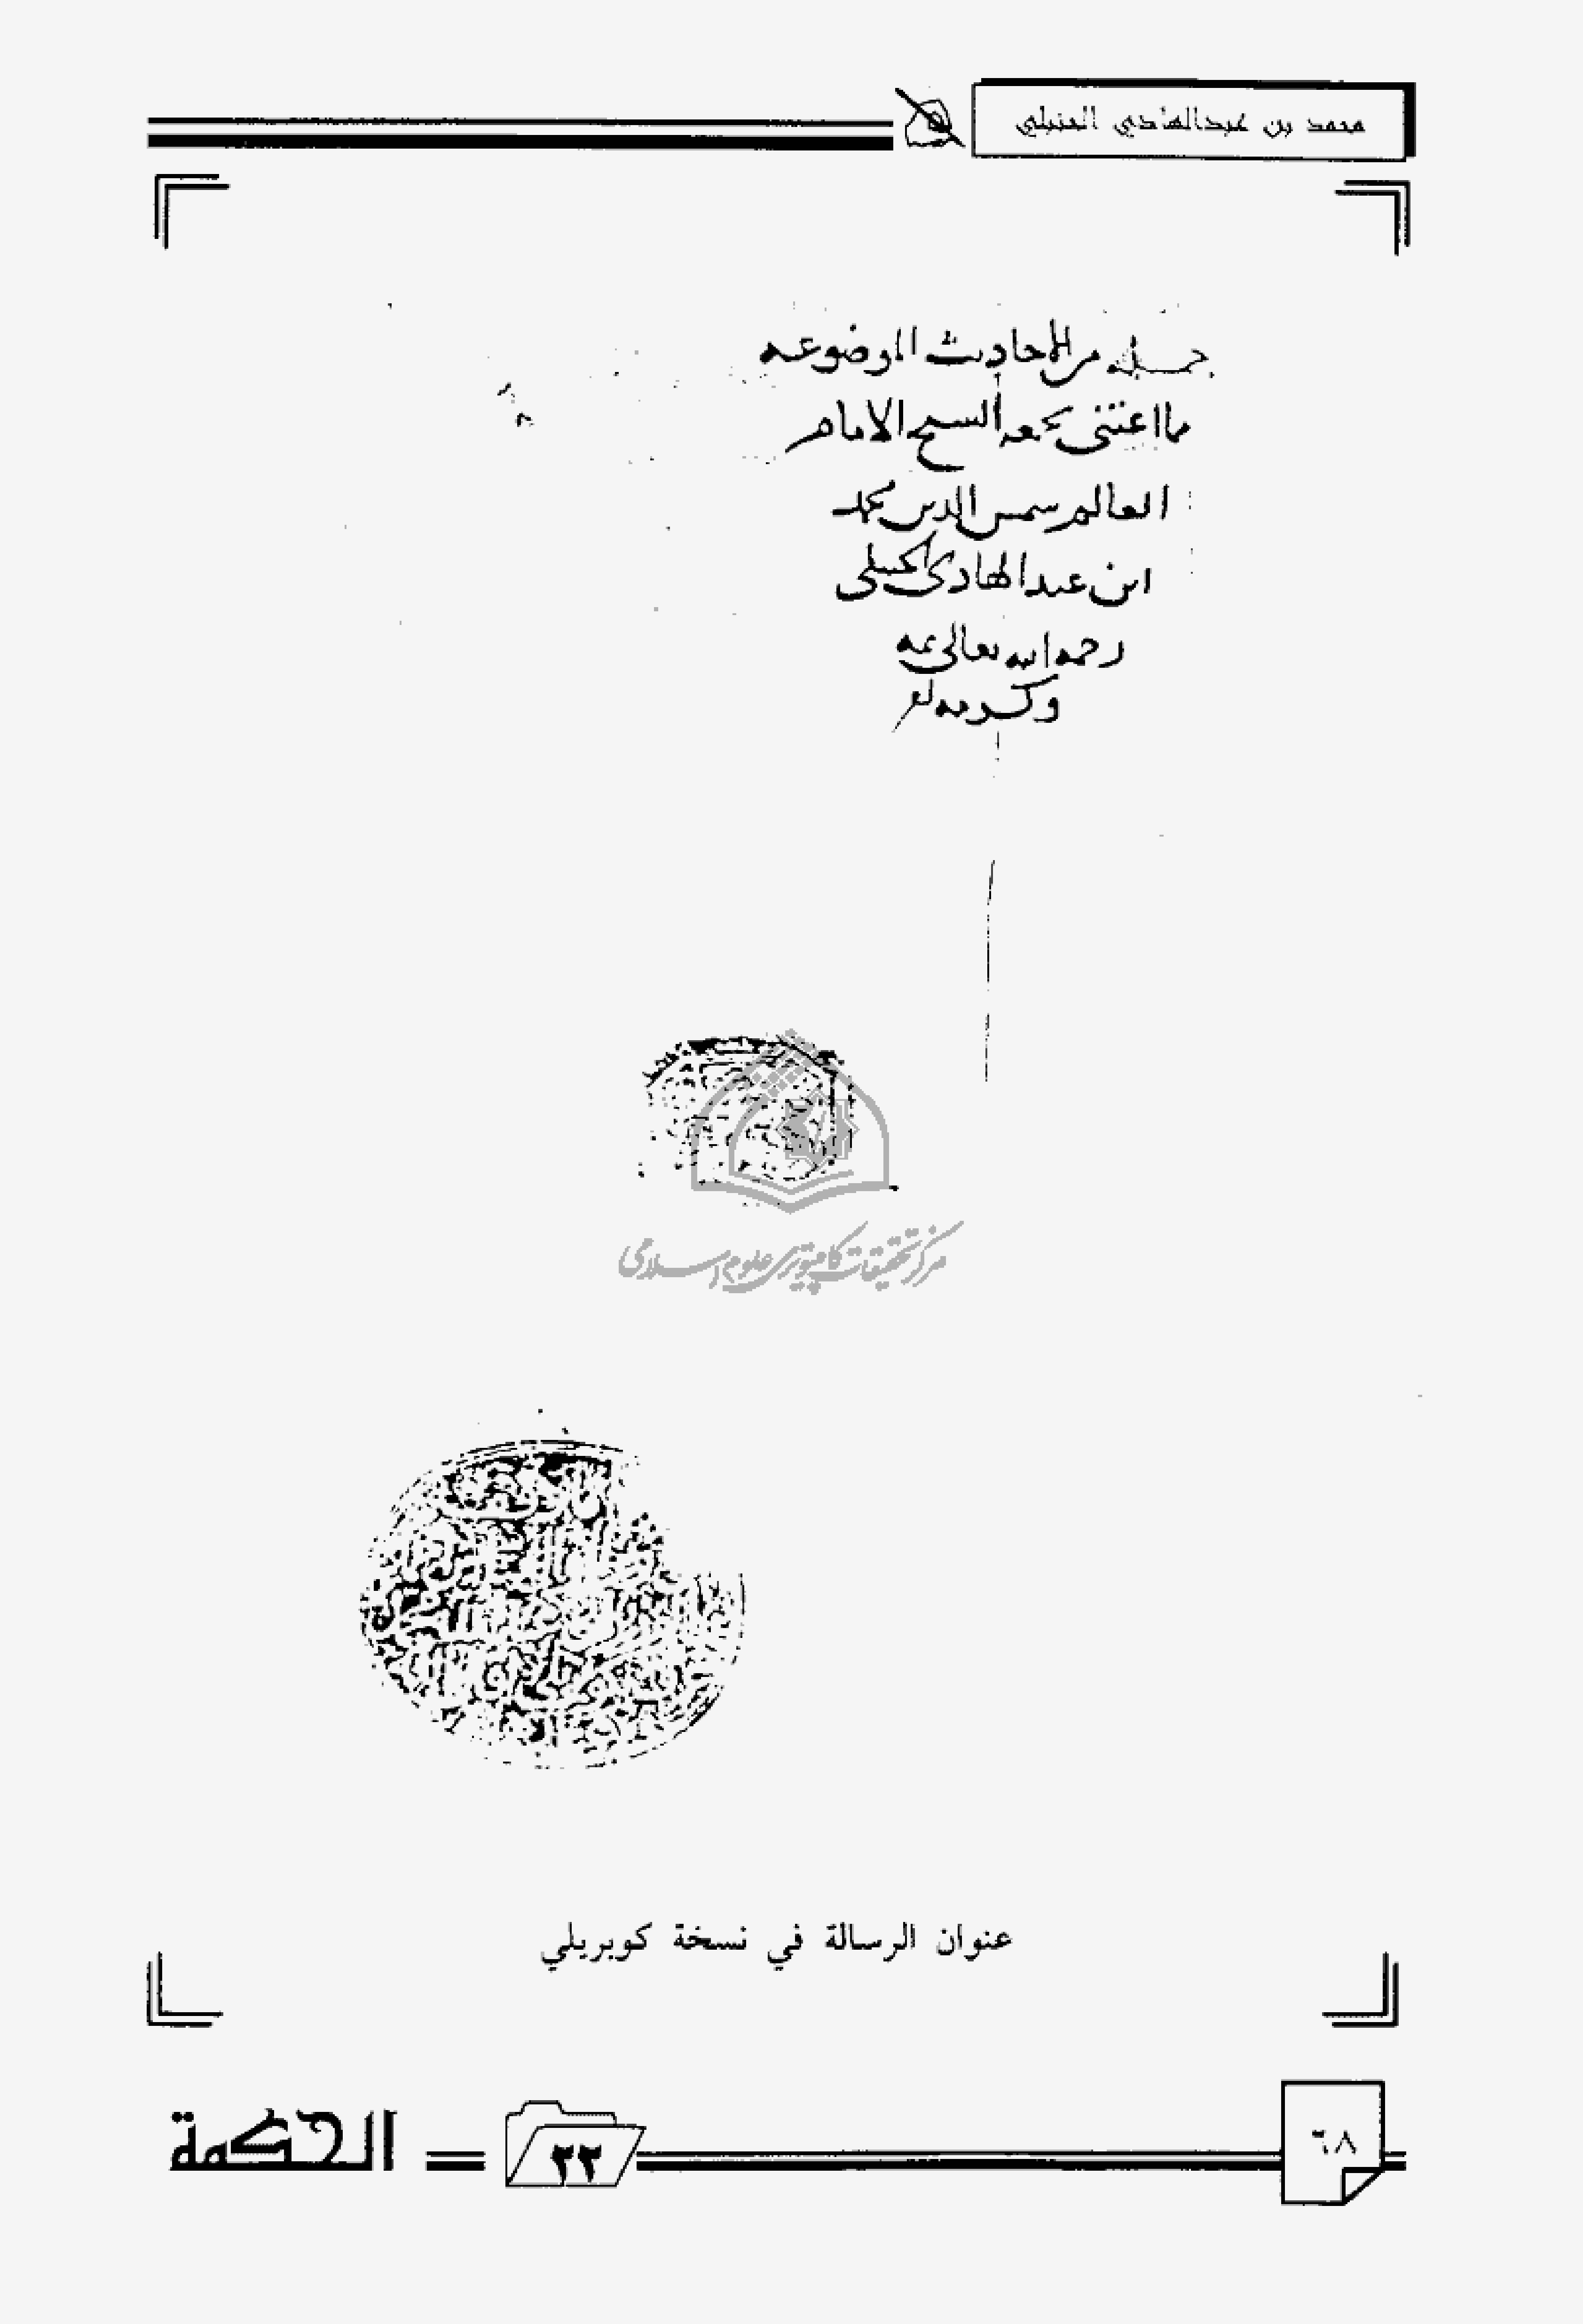 محمد بن عبدالهادي الحنبلي
جملة من الأحاديث الموضوعه
مما اعتنى بجمعه الشيخ الامام
العالم شمس الدين محمد
ابن عبد الهادي الحنبلي
رحمه الله تعالى بمنه
وكرمه
مركز تحقیقات کامپیوتری علوم اسلامی
عنوان الرسالة في نسخة كوبريلي
٦٨
٢٢
الحكمة